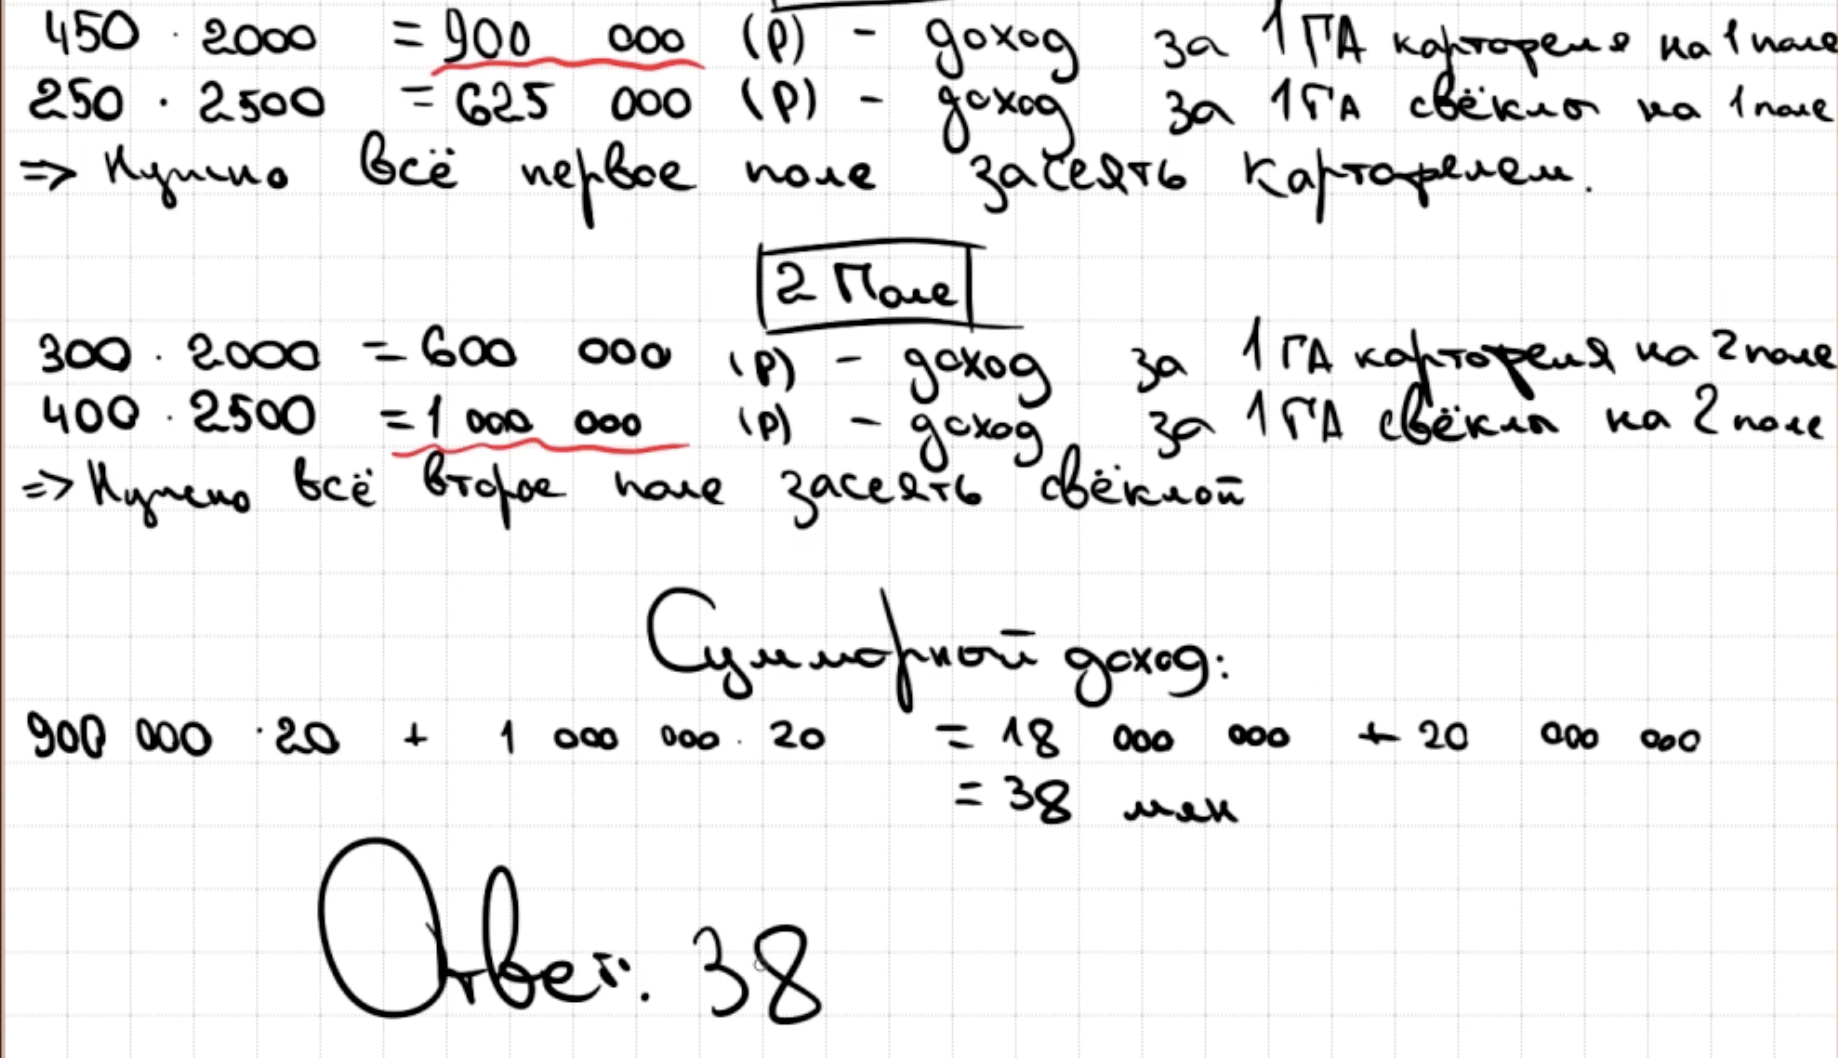 450 · 2000 = 900 000 (р) - доход за 1 ГА картофеля на 1 поле
250 · 2500 = 625 000 (р) - доход за 1 ГА свёклы на 1 поле
=> Нужно всё первое поле засеять картофелем.
2 Поле
300 · 2000 = 600 000 (р) - доход за 1 ГА картофеля на 2 поле
400 · 2500 = 1 000 000 (р) - доход за 1 ГА свёклы на 2 поле
=> Нужно всё второе поле засеять свёклой
Суммарный доход:
900 000 · 20 + 1 000 000 · 20 = 18 000 000 + 20 000 000
= 38 млн
Ответ: 38